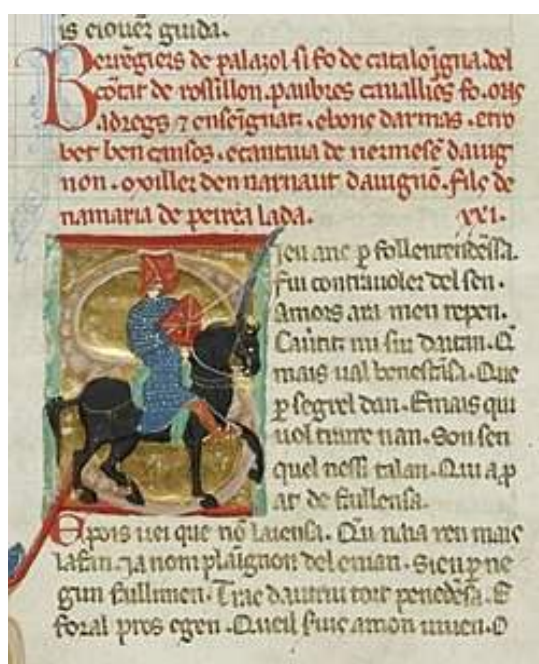 is clouez guida.
Berēgiers de palazol si fo de cataloīgna. del
cōtat de rossillon. paubres cauallies fo. mas
adregs ⁊ enseīgnatz. e bons darmas. e tro
bet ben cansos. e cantaua de nermesē dauig
non. moiller den narnaut dauignō. filz de
namaria de peirea lada. xxi.
ieu anc ꝑ follentendēssa.
fui contrauolez del sen.
Amors ara men repen.
mais ual benestāsa. Que
ꝑ segrel dan. E mais qui
uol uiure un an. son sen
quel nessi talan. Qui aꝑ
ar de fallensa.
E pois uei que nō laiensa. Qu naia ren mais
la fan. Ja nom plaīgnon del eman. Sieu ꝑ ne
gun fallimen. Trac dautrui tort penedēsa. E
foral pros e gen. Queil fuic amon uiuen. O